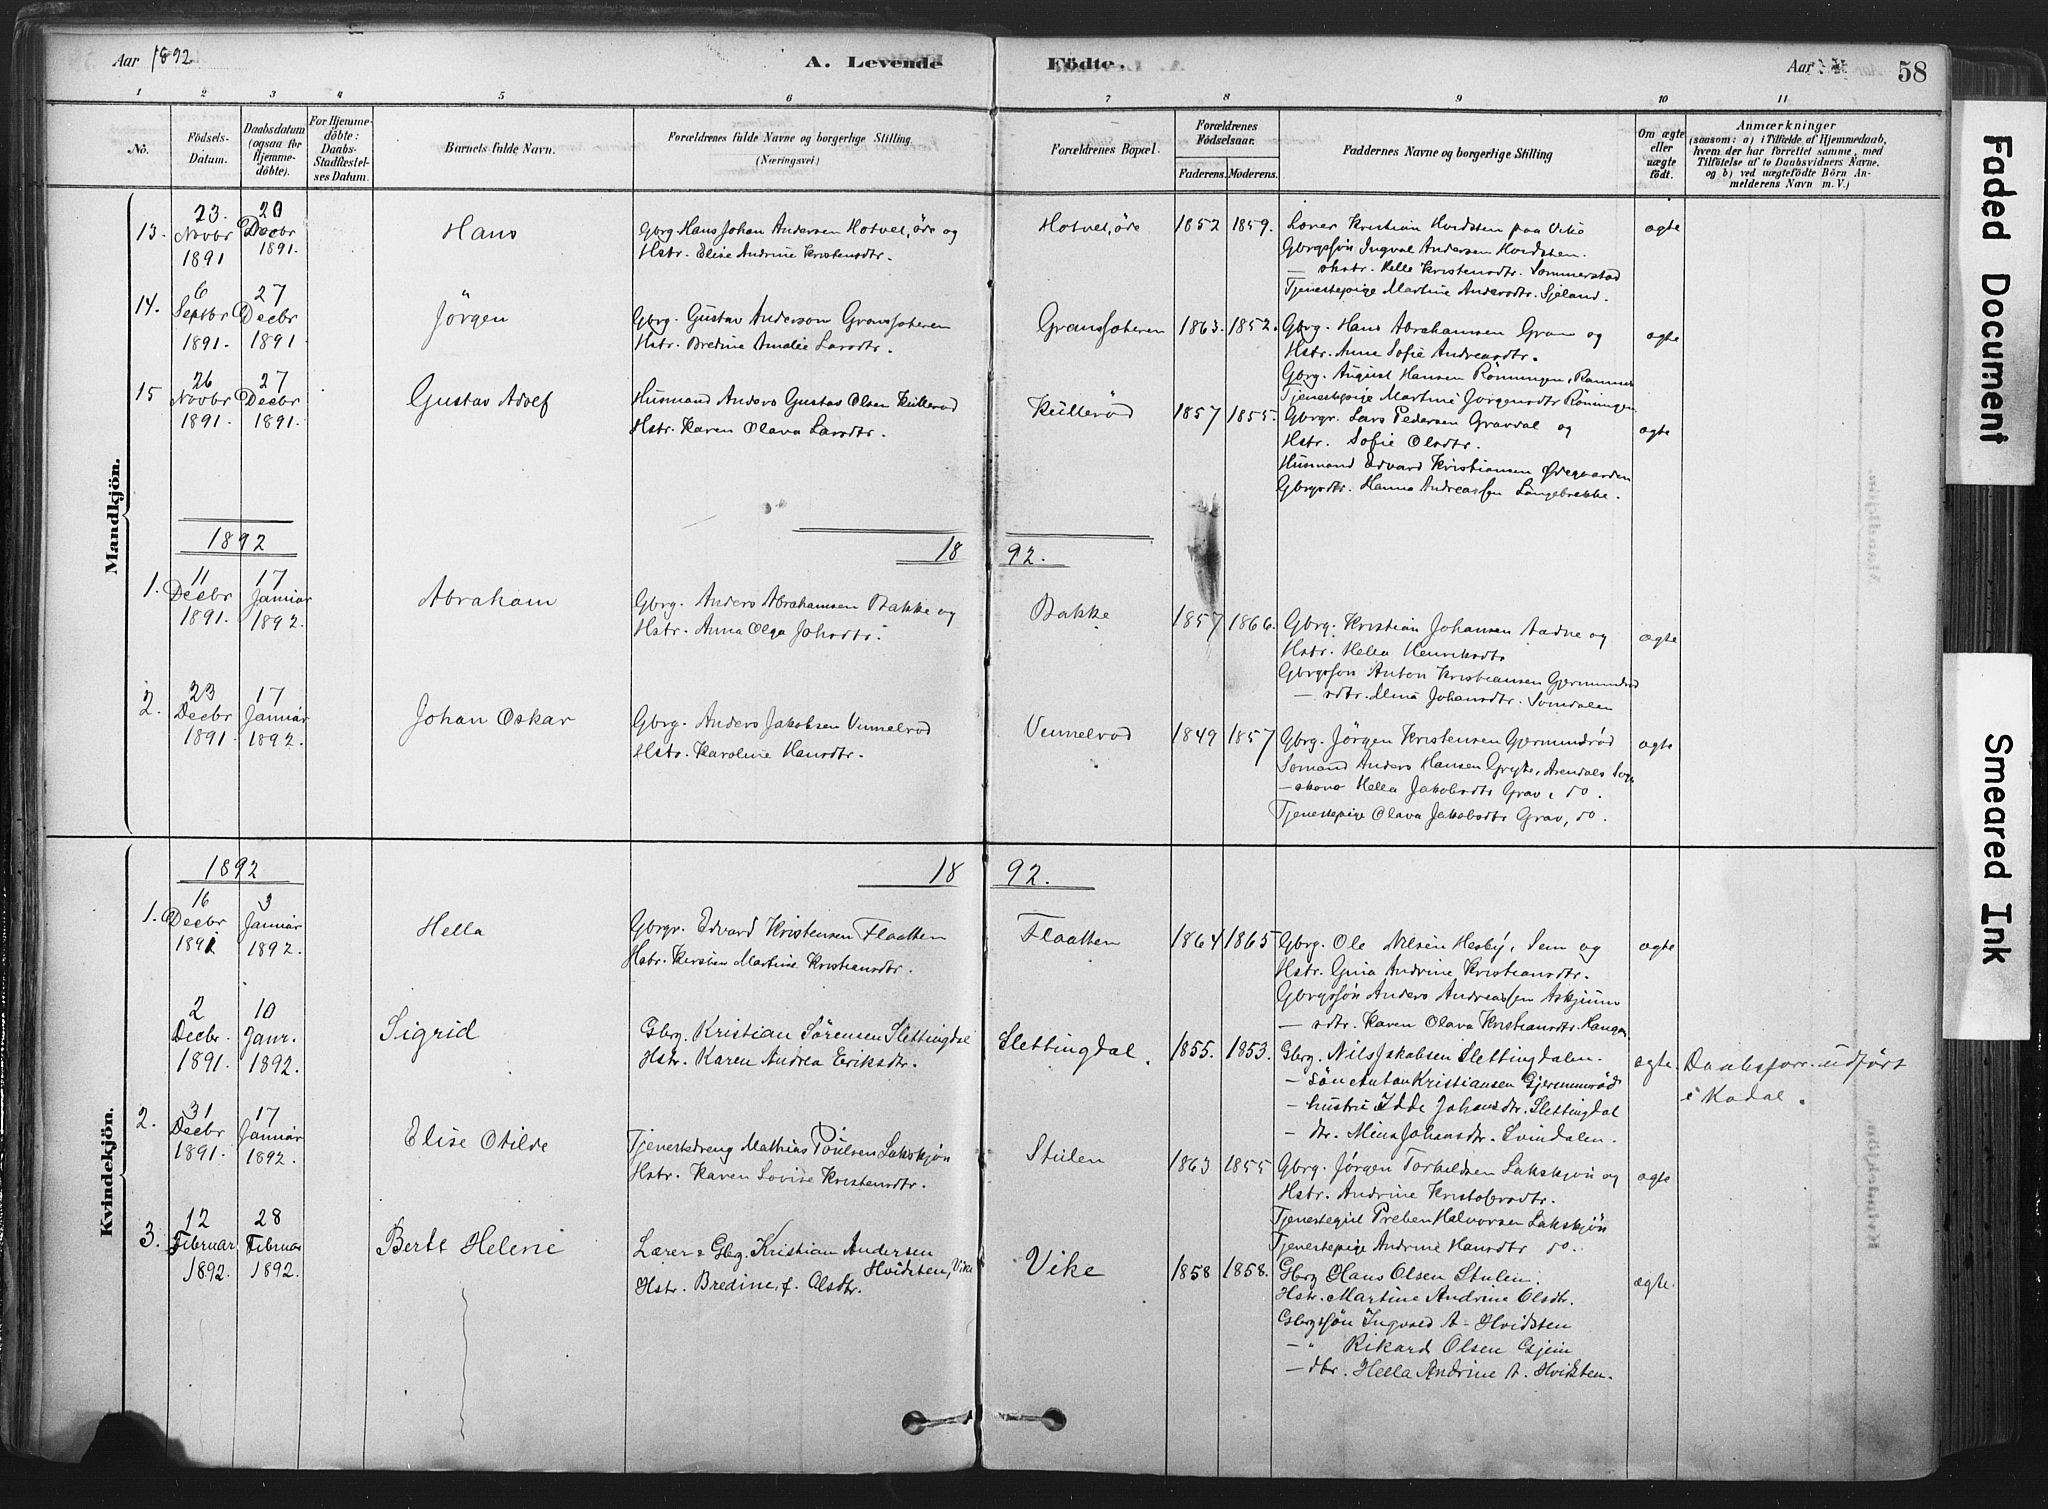 Aar 1892
A. Levende Födte.
Aar
58
1 2 3 4 5 6 7 8 9 10 11
No.
Födsels-Datum.
Daabsdatum (ogsaa for Hjemme-döbte).
For Hjemme-döbte: Daabs-Stadfæstel-ses Datum.
Barnets fulde Navn.
Forældrenes fulde Navne og borgerlige Stilling (Næringsvei)
Forældrenes Bopæl.
Forældrenes Födselsaar.
Faderens. Moderens.
Faddernes Navne og borgerlige Stilling
Om ægte eller uægte födt.
Anmærkninger
(saasom: a) i Tilfælde af Hjemmedaab,
hvem der har forrettet samme, med
Tilföielse af to Daabsvidners Navne,
og b) ved uægtefödte Börn An-
melderens Navn m. V.)
Mandkjön.
13. 23. Novbr 1891 20 Decbr 1891. Hans
Gbrg Hans Johan Andersen Hotvet, öde og
Hstr. Elise Andrine Kristensdtr.
Hotvet, öde 1852 1859.
Lærer Kristian Hvidsten paa Vike
Gbrgssön Ingval Andersen Hvidsten.
Helle Kristensdtr. Sommerstad
Tjenestepige Martine Andersdtr. Sjeland.
ægte
14. 6 Septbr 1891. 27 Decbr 1891 Jörgen
Gbrg. Gustav Anderson Gransæteren
Hstr. Bredine Amalie Larsdtr.
Gransæteren 1863. 1852.
Gbrg. Hans Abrahamsen Gran og
Hstr. Anne Sofie Andreasdtr.
Gbrg. August Hansen Rönningen, Ramnes
Tjenestepige Martine Jörgensdtr Röningen
ægte
15 26 Novbr 1891. 27 Decbr 1891. Gustav Adolf
Husmand Anders Gustav Olsen Kulleröd
Hstr. Karen Olava Larsdtr.
Kulleröd 1857 1855.
Gbrgr. Lars Pedersen Gravdal og
Hstr. Sofie Olsdtr.
Husmand Edvard Kristiansen Ødegaarden
Gbrgsdtr. Hanna Andreassen Langebrekke.
ægte
1892 1892.
1. 11 Decbr 1891. 17 Januar 1892. Abraham
Gbrg. Anders Abrahamsen Bakke og
Hstr. Anna Olga Johsdtr.
Bakke 1857 1866.
Gbrg. Kristian Johansen Aadne og
Hstr. Hella Henriksdtr
Gbrgssön Anton Kristiansen Gjermundröd
— sdtr. Mina Johansdtr.
ægte
2. 23 Decbr 1891. 17 Januar 1892. Johan Oskar
Gbrg. Anders Jakobsen Vinnelröd
Hstr. Karoline Hansdtr.
Vinnelröd 1849 1857
Gbrg. Jörgen Kristensen Gjermundröd
Sömand Anders Hansen Gryte, Arendals Sogn
— skone Hella Jakobsdtr Grav, do.
Tjenestepige Olava Jakobsdtr Grav, do.
ægte
Kvindekjön.
1892 1892.
1. 16 Decbr 1891 3 Januar 1892. Hella
Gbrgr. Edvard Kristensen Flaatten
Hstr. Kirsten Martine Kristiansdtr.
Flaatten 1864 1865
Gbrg. Ole Nilsen Hesby, Sem og
Hstr. Gina Andrine Kristiansdtr.
Gbrgssön Anders Andreassen Askjum
— sdtr. Karen Olava Kristiansdtr.
ægte
2 Decbr. 1891 10 Janr. 1892. Sigrid
Gbrg. Kristian Sörensen Slettingdal
Hstr. Karen Andrea Eriksdtr.
Slettingdal. 1855. 1853.
Gbrg. Nils Jakobsen Slettingdalen.
— sön Anton Kristiansen Gjermunröd
— hustru Idde Johansdtr. Slettingdal
— dtr. Mina Johansdtr. Svindalen.
ægte.
Daabsforr. udført
i Kodal.
2. 31 Decbr 1891. 17 Januar 1892. Elise Otilde
Tjenestedreng Mathias Poulsen Lakskjön
Hstr. Karen Lovise Kristensdtr.
Stulen 1863 1855
Gbrg. Jörgen Torkildsen Lakskjön og
Hstr. Andrine Kristofersdtr.
Tjenestegut Preben Halvorsen Lakskjön
Tjenestepige Andrine Hansdtr do.
ægte
3. 12 Februar 1892. 28 Februar 1892. Berte Helene
Lærer & Gbrg. Kristian Andersen
Hvidsten, Vike
Hstr. Bredine, f. Olsdtr.
Vike 1858 1858.
Gbrg Hans Olsen Stulen.
Hstr. Martine Andrine Olsdtr.
Gbrgssön Ingvald A. Hvidsten
— " Rikard Olsen Gjein
— dtr. Hella Andrine A. Hvidsten.
ægte.
Faded Document
Smeared Ink